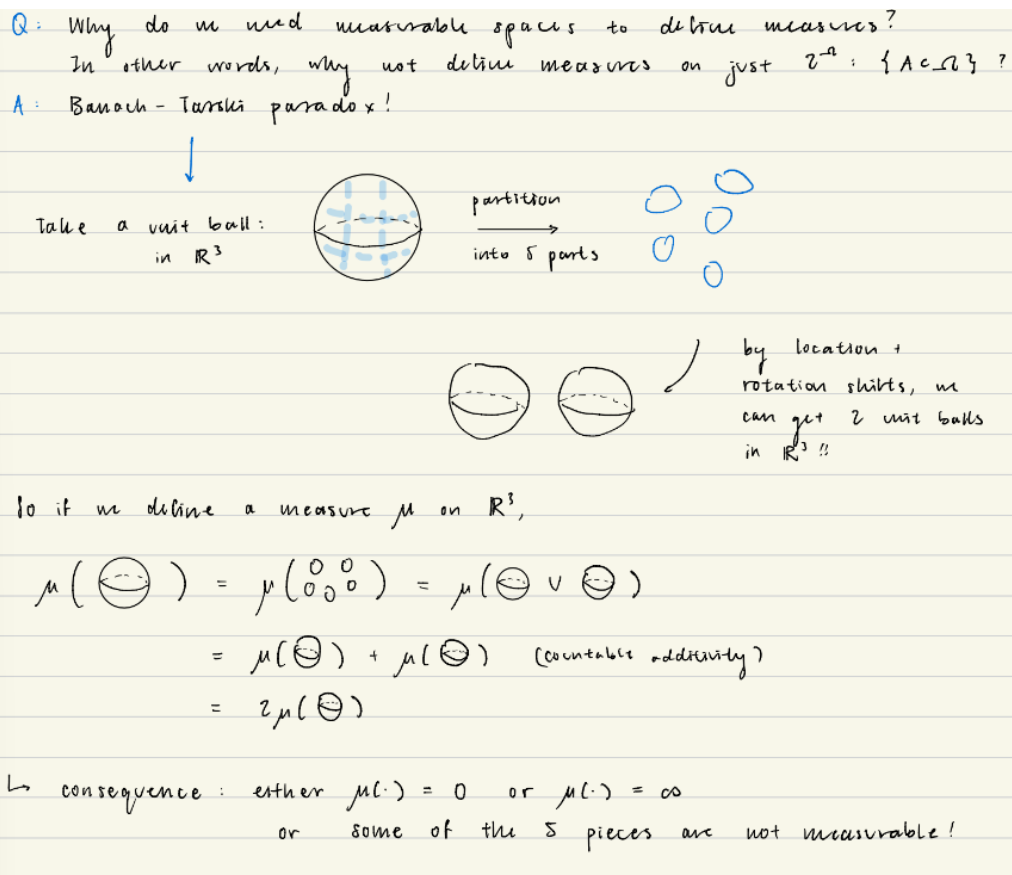 Q: Why do we need measurable spaces to define measures?
In other words, why not define measures on just 2^Ω : {A ⊂ Ω} ?
A: Banach - Tarski paradox!
Take a unit ball:
in ℝ³
partition
into 5 parts
by location +
rotation shifts, we
can get 2 unit balls
in ℝ³ !!
So if we define a measure μ on ℝ³,
μ( ) = μ( ) = μ( ∪ )
= μ( ) + μ( ) (countable additivity)
= 2μ( )
↳ consequence: either μ(·) = 0 or μ(·) = ∞
or some of the 5 pieces are not measurable!